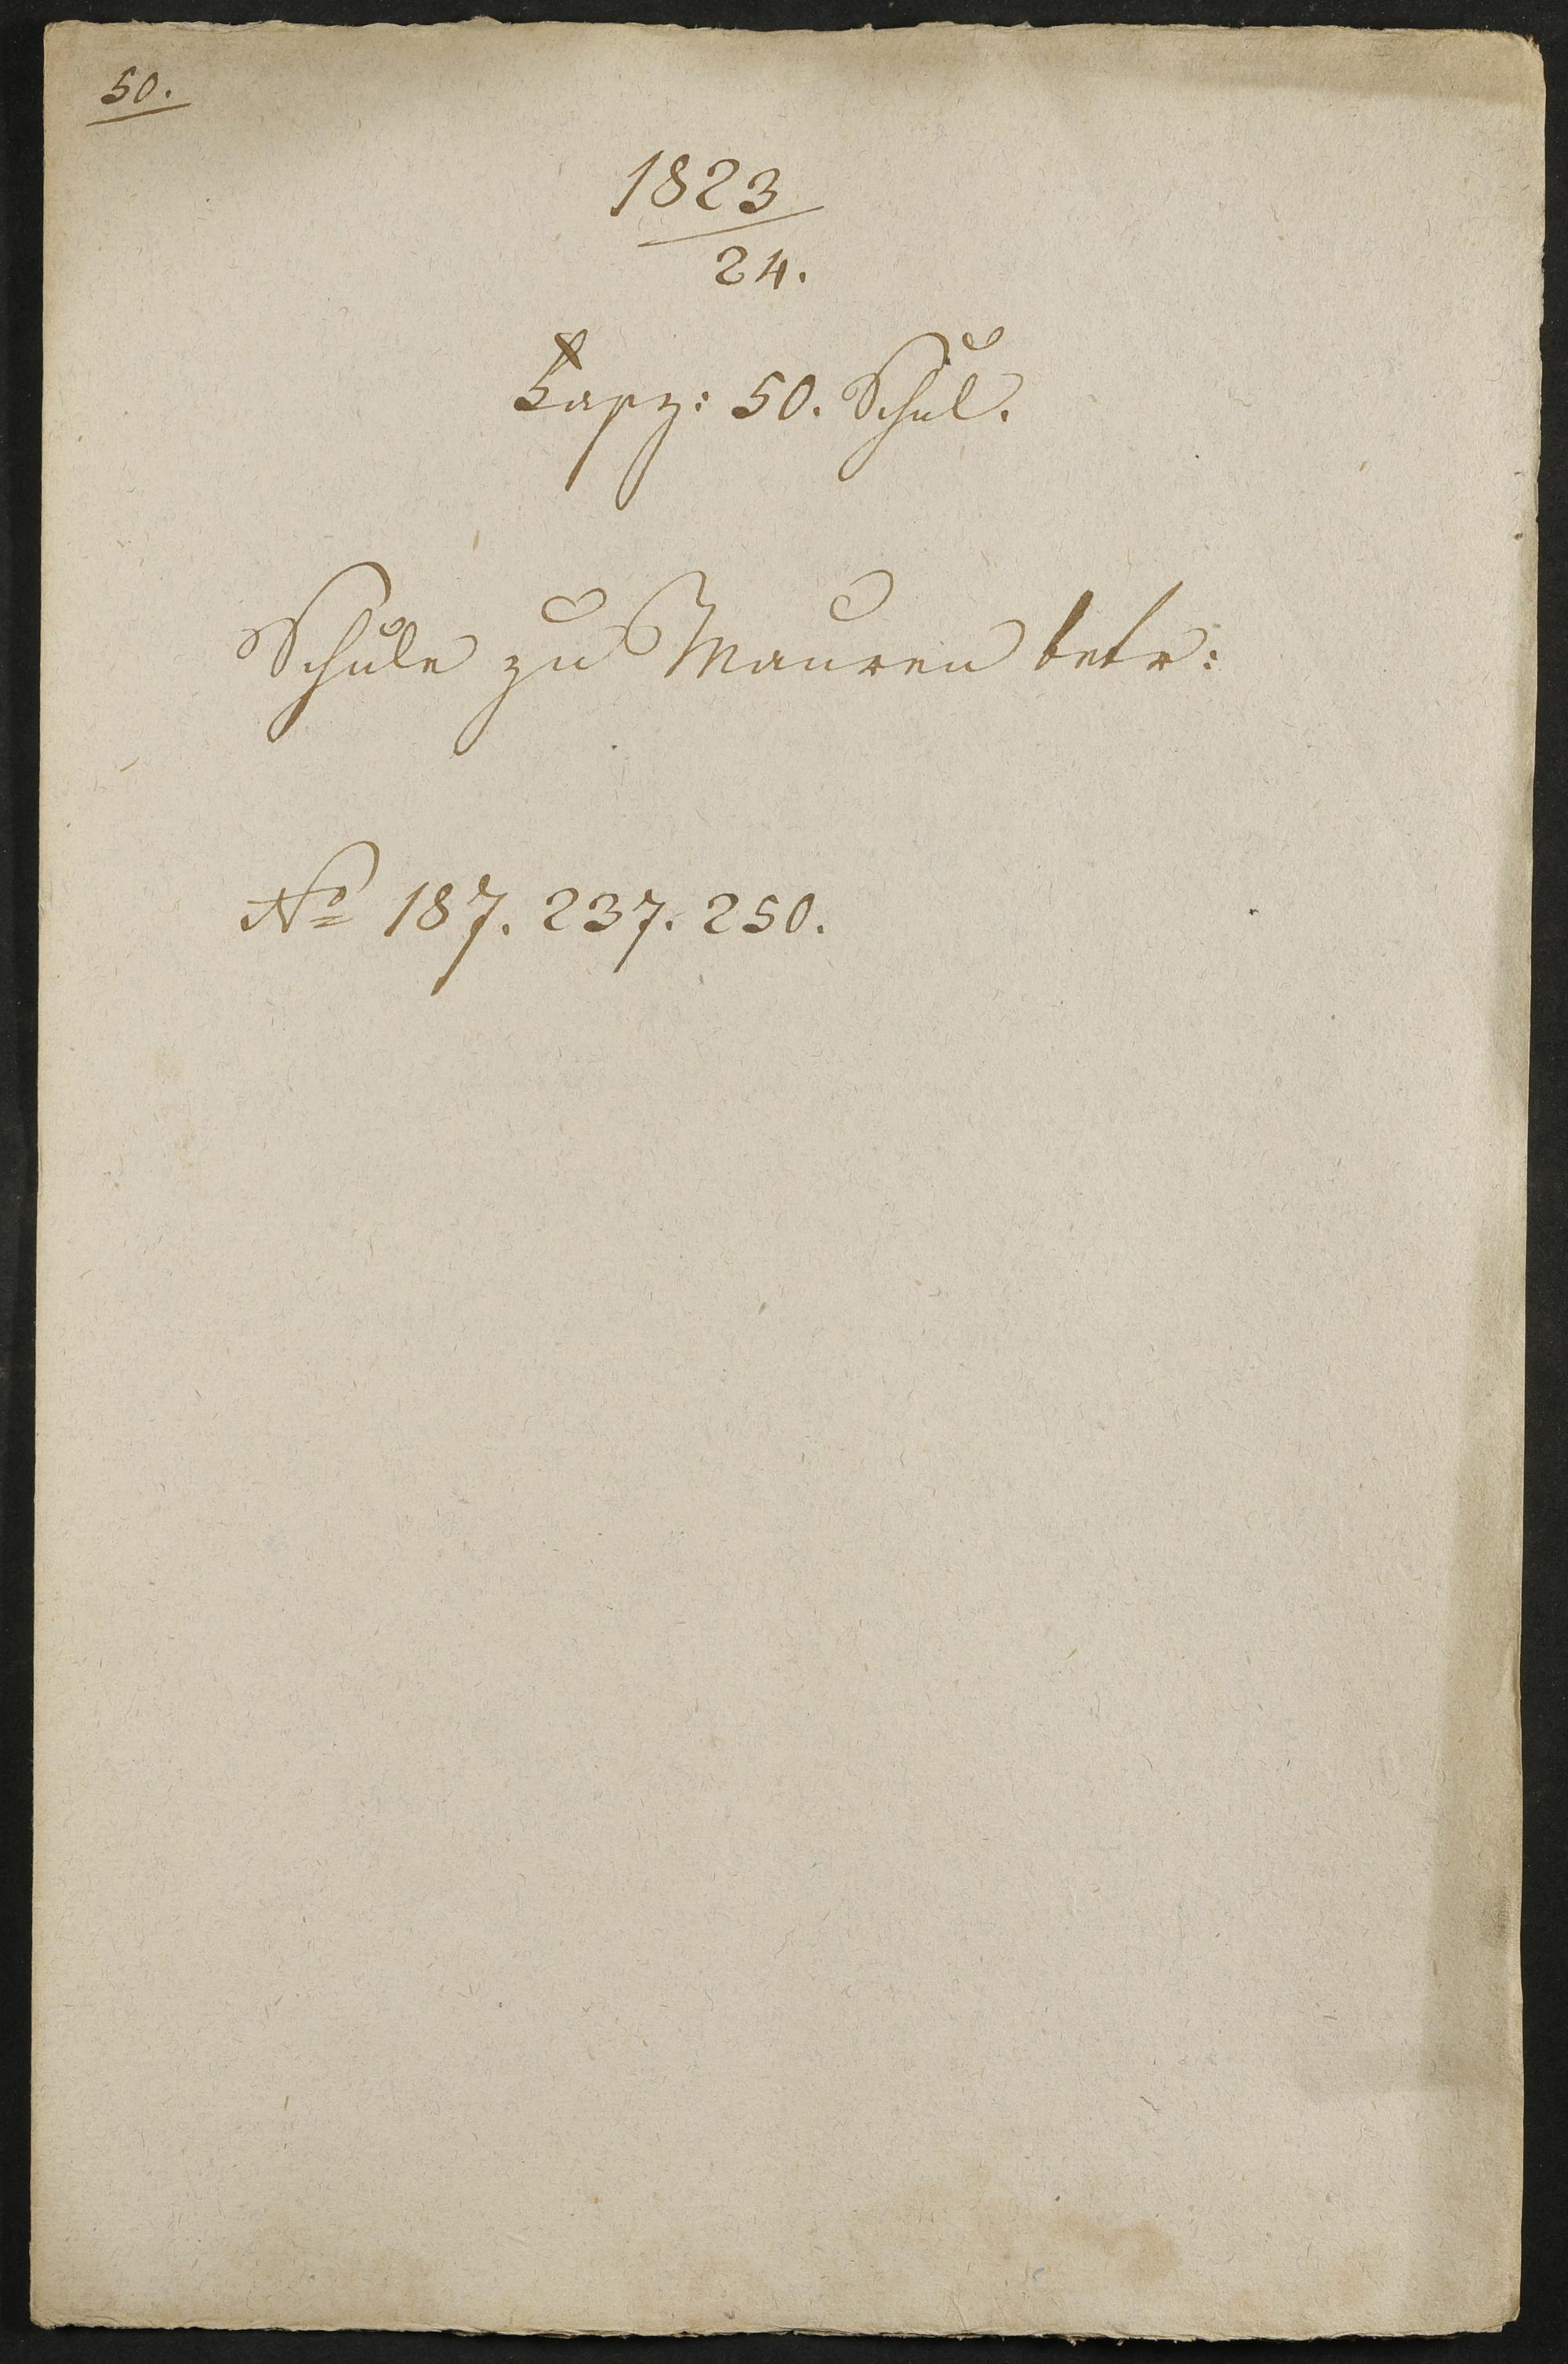 50.
1823
24.
Fasz: 50. Schul.
Schule zu Mauren betr:
No 187. 237. 250.